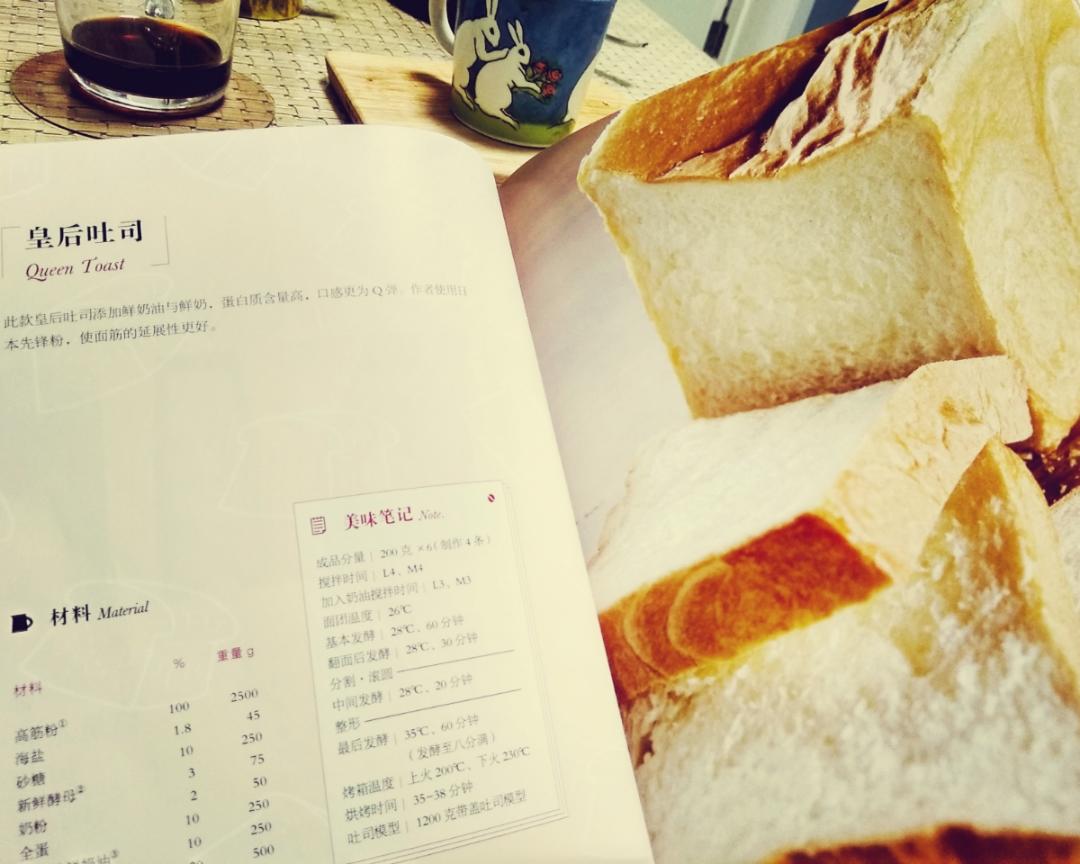 皇后吐司
Queen Toast
此款皇后吐司添加鲜奶油与鲜奶，蛋白质含量高，口感更为Q弹。作者使用日
本先锋粉，使面筋的延展性更好。
美味笔记 Note.
成品分量｜200克 ×6（制作4条）
搅拌时间｜L4、M4
加入奶油搅拌时间｜L3、M3
面团温度｜26℃
基本发酵｜28℃、60分钟
翻面后发酵｜28℃、30分钟
分割·滚圆
中间发酵｜28℃、20分钟
整形
最后发酵｜35℃、60分钟
（发酵至八分满）
烤箱温度｜上火200℃、下火230℃
烘烤时间｜35-38分钟
吐司模型｜1200克带盖吐司模型
材料 Material
材料 % 重量 g
高筋粉① 100 2500
海盐 1.8 45
砂糖 10 250
新鲜酵母② 3 75
奶粉 2 50
全蛋 10 250
鲜奶油③ 10 250
500